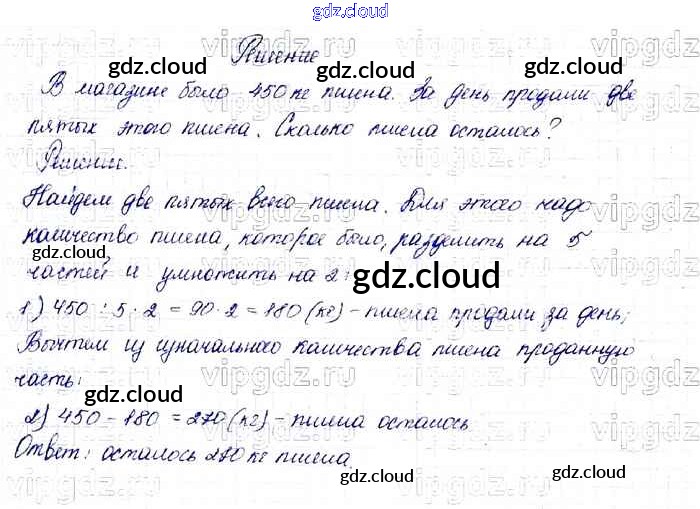 gdz.cloud
Решение
В магазине было 450 кг пшена. За день продали две
пятых этого пшена. Сколько пшена осталось?
Решение.
Найдем две пятых всего пшена. Для этого надо
количество пшена, которое было, разделить на 5
частей и умножить на 2:
1) 450 : 5 · 2 = 90 · 2 = 180 (кг) - пшена продали за день;
Вычтем из изначального количества пшена проданную
часть:
2) 450 - 180 = 270 (кг) - пшена осталось
Ответ: осталось 270 кг пшена.
gdz.cloud
gdz.cloud
gdz.cloud
gdz.cloud
gdz.cloud
gdz.cloud
gdz.cloud
vipgdz
vipgdz
vipgdz
vipgdz